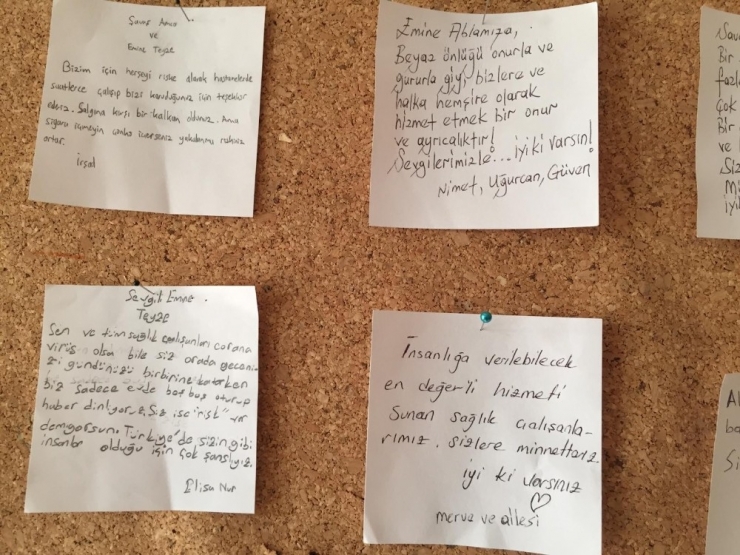 Savaş Amca
ve
Emine Teyze
Bizim için herşeyi riske alarak hastanelerde
saatlerce çalışıp bizi koruduğunuz için teşekkür
ederiz. Salgına karşı bir kalkan oldunuz. Ama
sigara içmeyin çünkü içerseniz yakalanma riskiniz
artar.
İrşal
Emine Ablamıza,
Beyaz önlüğü onurla ve
gururla giyip bizlere ve
halka hemşire olarak
hizmet etmek bir onur
ve ayrıcalıktır!
Sevgilerimizle... iyiki varsın!
Nimet, Uğurcan, Güven
Sevgili Emine
Teyze
Sen ve tüm sağlık çalışanları corana
virüs olsa bile siz orada gecenizi
gündünüzü birbirine katarken
biz sadece evde boş boş oturup
haber dinliyoruz. Siz ise "risk" var
demiyorsun. Türkiye'de sizin gibi
insanlar olduğu için çok şanslıyız.
Elisa Nur
İnsanlığa verilebilecek
en değerli hizmeti
Sunan sağlık çalışanla-
rımız, sizlere minnettarız
iyi ki varsınız
merve ve ailesi
Bir
çok
Bir
ve
Siz